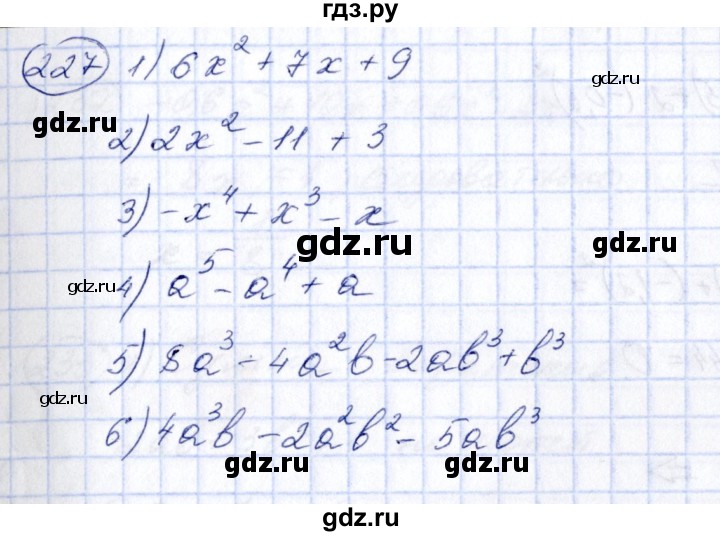 гдз.ру
227 1) 6x² + 7x + 9
gdz.ru
2) 2x² - 11 + 3
3) -x⁴ + x³ - x
gdz.ru
gdz.ru
4) a⁵ - a⁴ + a
5) 8a³ - 4a²b - 2ab³ + b³
gdz.ru
6) 4a³b - 2a²b² - 5ab³
gdz.ru gdz.ru
gdz.ru